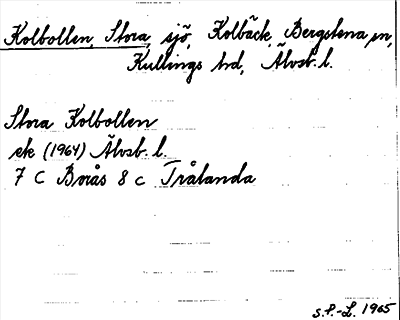 Kolbollen, Stora, sjö, Kolbäck, Bergstena sn,
Kullings hd, Älvsb. l.
Stora Kolbollen
ek (1964) Älvsb. l.
7 C Borås 8 c Trålanda
S.P.-L. 1965